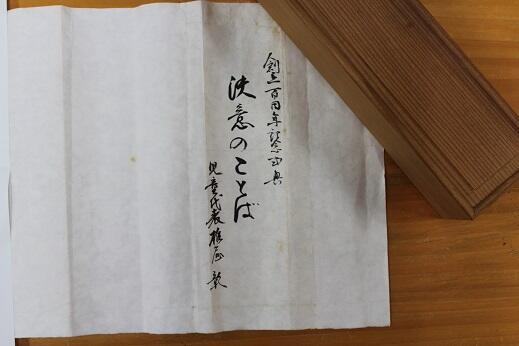 創立百周年記念式典
決意のことば
児童代表